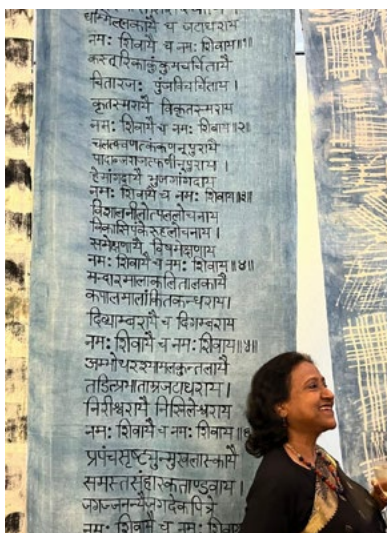 धम्मिल्लकायै च जटाधराय
नमः शिवायै च नमः शिवाय॥१॥
कस्तूरिकाकुंकुमचर्चितायै
चितारजः पुंजविचर्चिताय।
कृतस्मरायै विकृतस्मराय
नमः शिवायै च नमः शिवाय॥२॥
नमः शिवायै च नमः शिवाय॥३॥
विशालनीलोत्पललोचनायै
विकासिपंकेरुहलोचनाय।
समेक्षणायै विषमेक्षणाय
नमः शिवायै च नमः शिवाय॥४॥
मन्दारमालाकलितालकायै
कपालमालांकितकन्धराय।
दिव्याम्बरायै च दिगम्बराय
नमः शिवायै च नमः शिवाय॥५॥
अम्भोधरश्यामलकुन्तलायै
तडित्प्रभाताम्रजटाधराय।
निरीश्वरायै निखिलेश्वराय
नमः शिवायै च नमः शिवाय॥
प्रपंचसृष्ट्युन्मुखलास्यकायै
समस्तसंहारकताण्डवाय।
जगज्जनन्यैजगदेकपित्रे
नमः शिवायै च नमः शिवाय